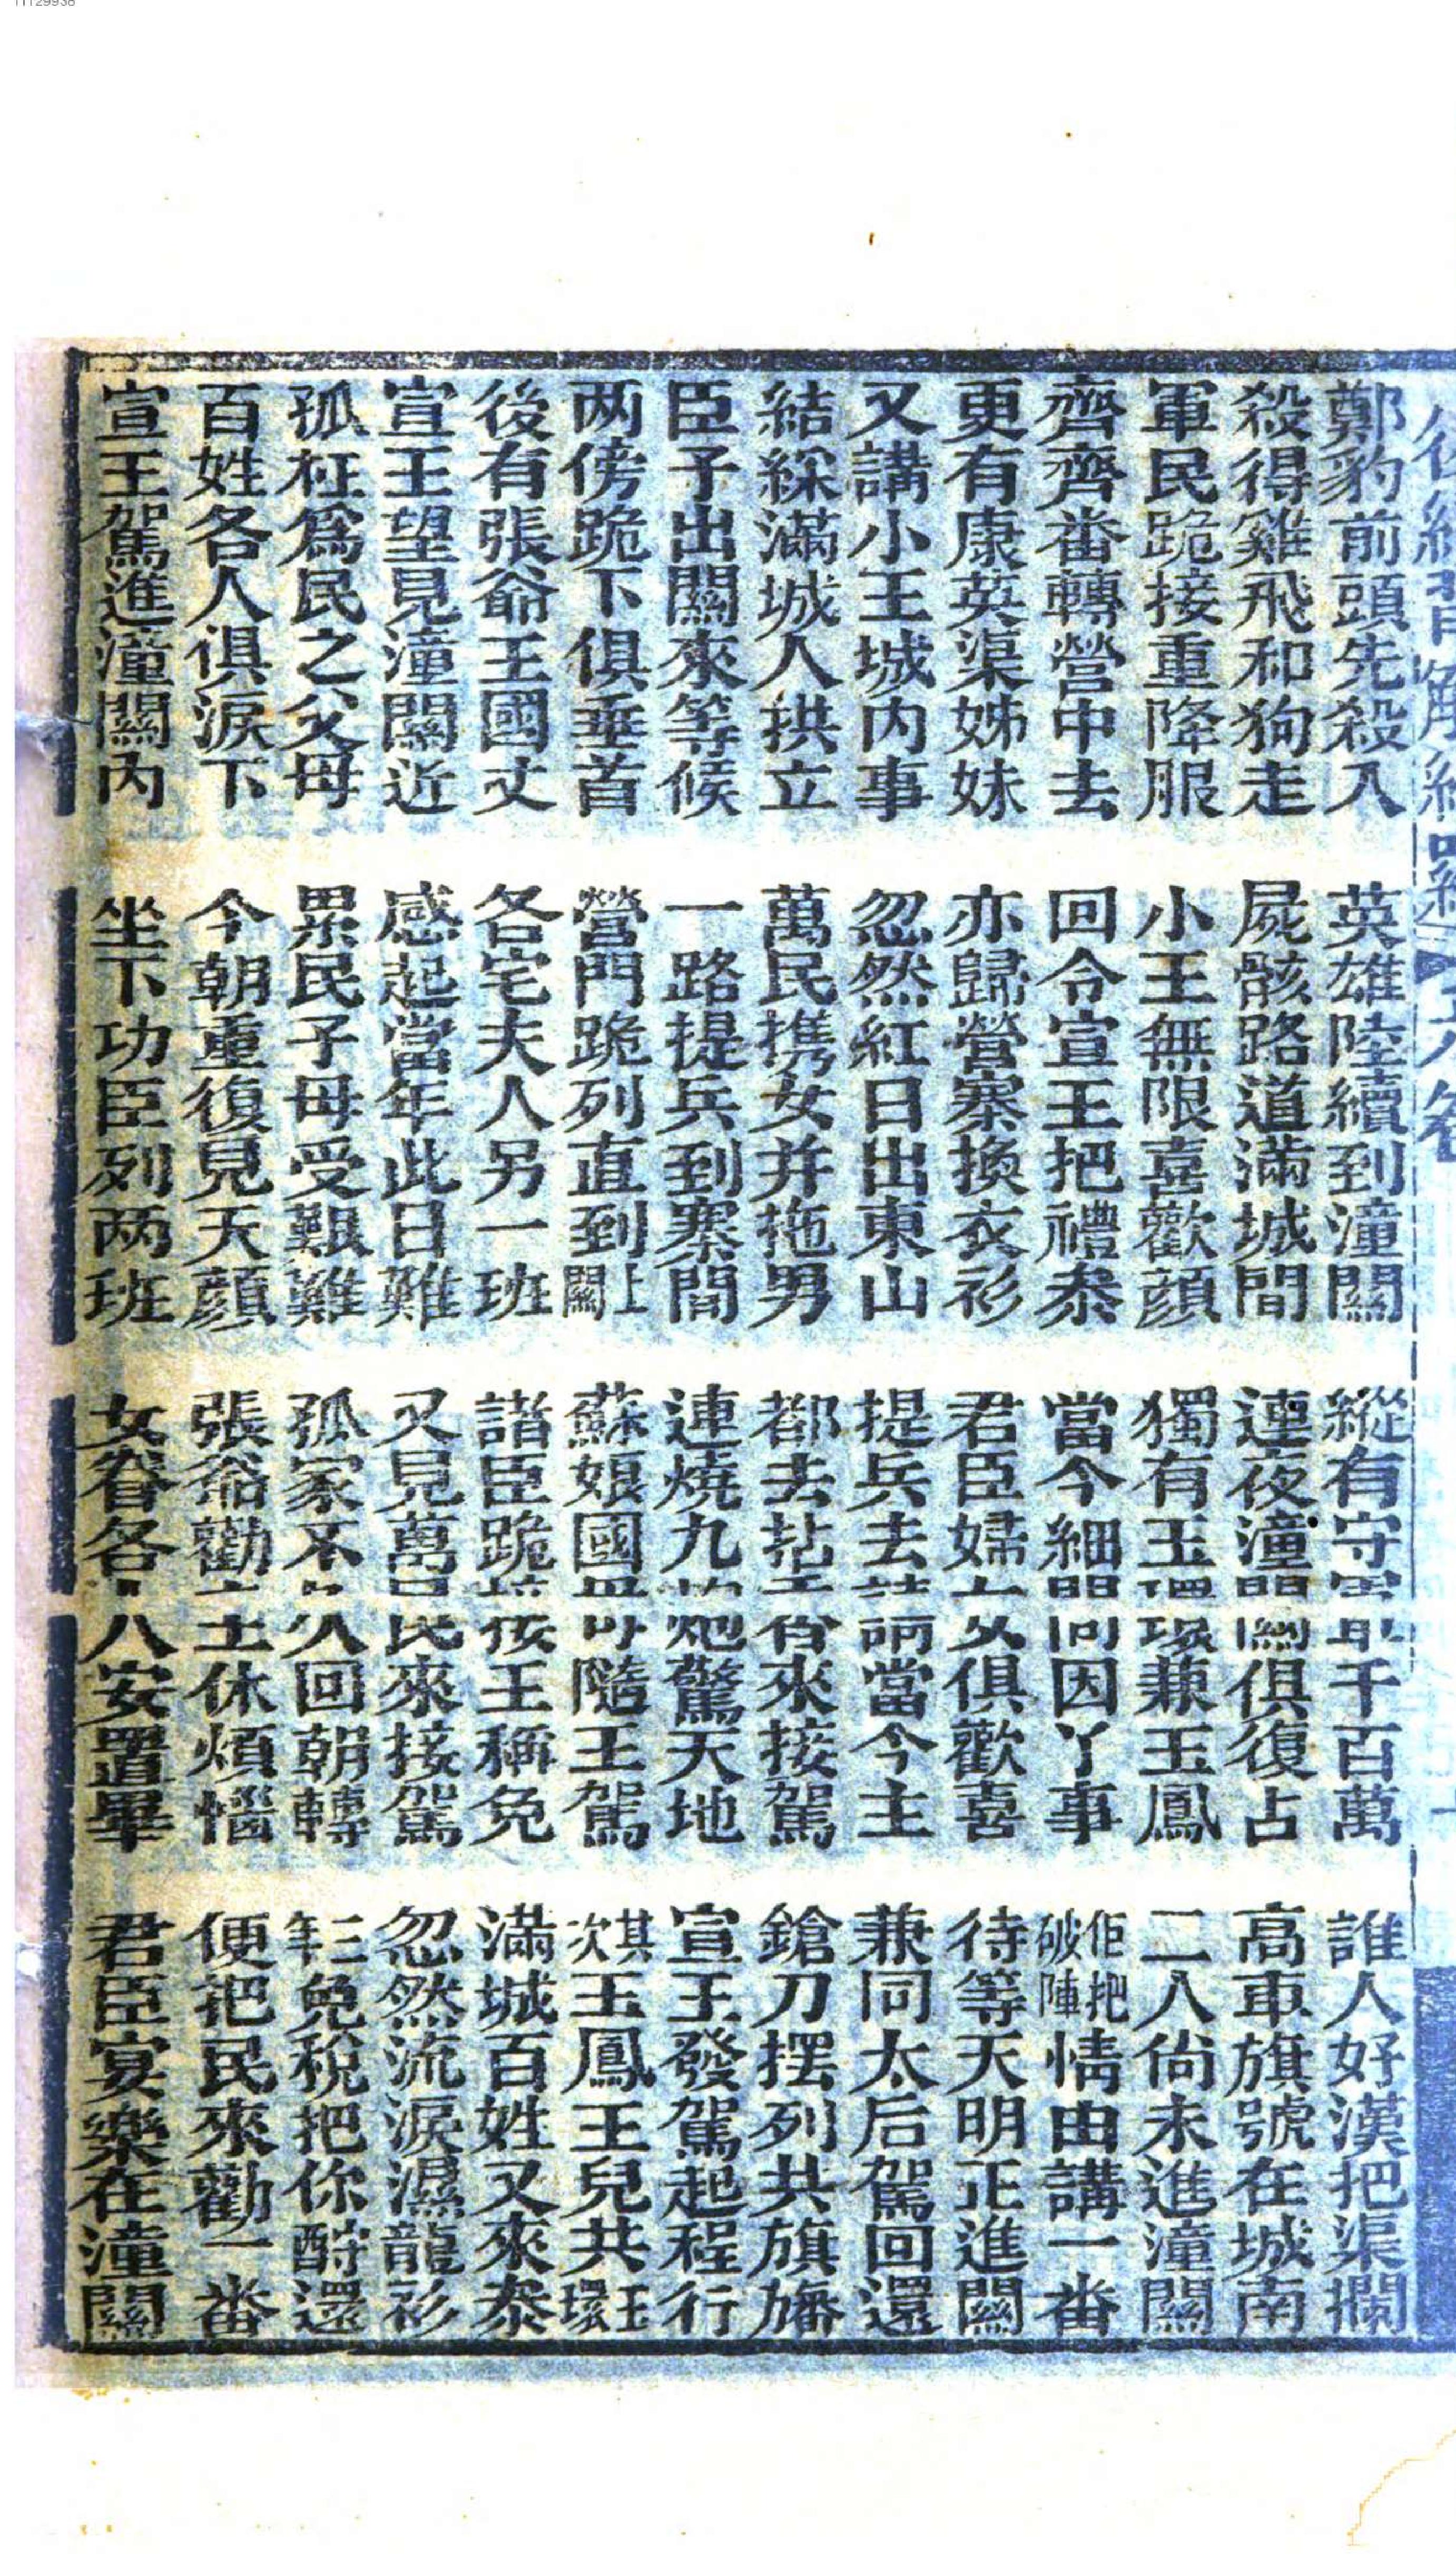 鄭豹前頭先殺入 英雄陸續到潼關 縱有守軍千百萬 誰人好漢把渠攔
殺得雞飛和狗走 屍骸路道滿城間 連夜潼關俱復占 高車旗號在城南
軍民跪接重降服 小王無限喜歡顔 獨有玉環兼玉鳳 二八尚未進潼關
齊齊畨轉營中去 回令宣王把禮叅 當今細問因丫事 佢把破陣情由講一畨
更有康英渠姊妹 亦歸營寨換衣衫 君臣婦女俱歡喜 待等天明正進關
又講小王城内事 忽然紅日出東山 提兵去請當今主 兼同太后駕回還
結綵滿城人拱立 萬民携女并拖男 都去拈香來接駕 鎗刀擺列共旗旛
臣予出關來等候 一路提兵到寨間 連燒九炮驚天地 宣王發駕起程行
两傍跪下俱垂首 營門跪列直到上關 蘇娘國母隨王駕 其次玉鳳王兒共玉環
後有張爺王國丈 各宅夫人另一班 諸臣跪接王稱免 滿城百姓又來叅
宣王望見潼關近 感起當年此日難 又見萬民來接駕 忽然流淚濕龍衫
孤枉爲民之父母 累民子母受艱難 孤家不久回朝轉 三年免稅把你酧還
百姓各人俱淚下 今朝重復見天顔 張爺勸主休煩惱 便把民來勸一畨
宣王駕進潼關內 坐下功臣列两班 女眷各人安置畢 君臣宴樂在潼關